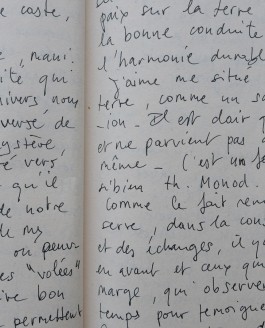 e caste,
, mani.
ité qui
nivers nous
versé de
ystère,
é vers
qu'il
de notre
de my
ou penser
es "volées"
ire bon
permettent
paix sur la terre
la bonne conduite
l'harmonie durable
J'aime me situe
terre, comme un
-ion. Il est clair q
et ne parvient pas
même - (c'est un
si bien Th. Monod.
comme le fait rem
serve, dans la con
et des échanges, il y
en avant et ceux qui
marge, qui observe
temps pour témoigne